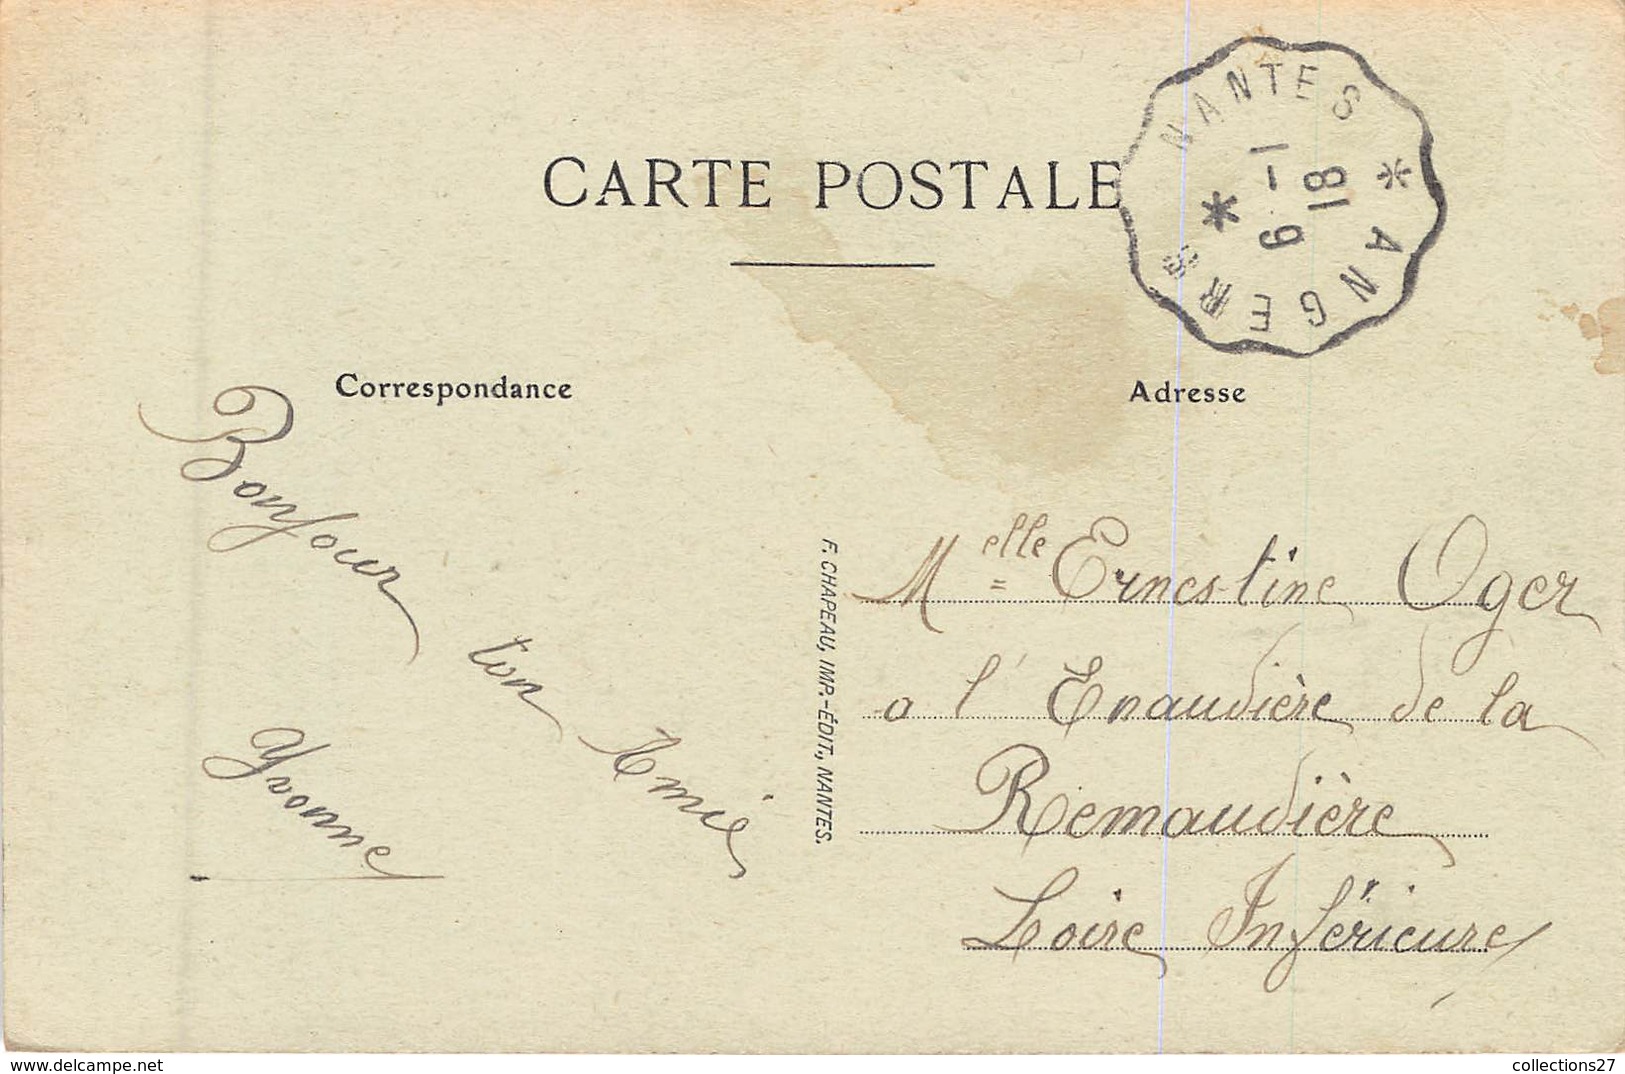 CARTE POSTALE
NANTES * ANGERS *
1-9
18
Correspondance
Adresse
Bonjour ton Amie
Yvonne
F. CHAPEAU, IMP.-ÉDIT., NANTES.
Melle Ernestine Oger
a l'Enaudière de la
Remaudière
Loire Inférieure
https://www.delcampe.net
collections27